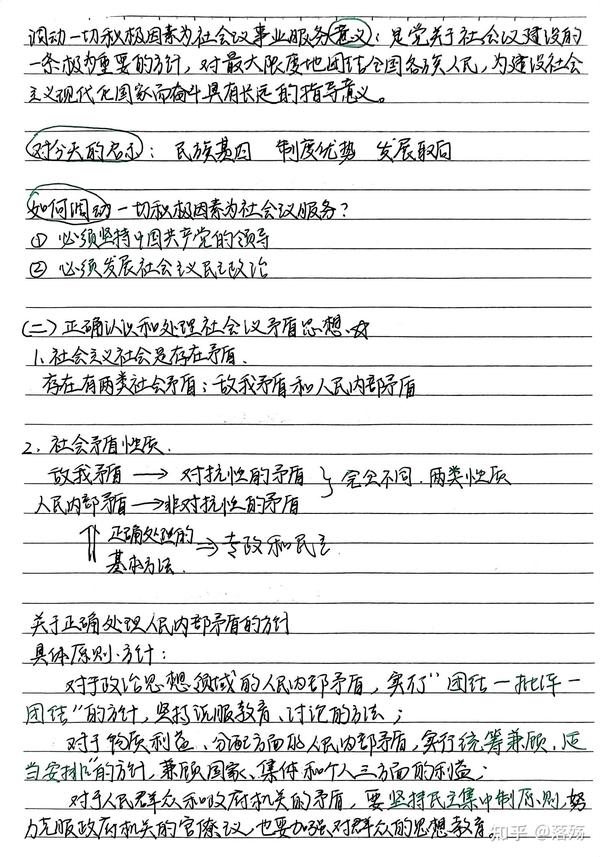 调动一切积极因素为社会议事业服务意义:是党关于社会议建设的
一条极为重要的方针,对最大限度地团结全国各族人民,为建设社会
主义现代化国家而奋斗具有长远的指导意义。
对今天的启示: 民族基因 制度优势 发展取向
如何调动一切积极因素为社会议服务?
① 必须坚持中国共产党的领导
② 必须发展社会主义民主政治
(二)正确认识和处理社会议矛盾思想.☆
1.社会主义社会是存在矛盾.
存在有两类社会矛盾:敌我矛盾和人民内部矛盾
2.社会矛盾性质.
敌我矛盾 → 对抗性的矛盾 } 完全不同.两类性质
人民内部矛盾→非对抗性的矛盾
正确处理的
基本方法. ⇒ 专政和民主
关于正确处理人民内部矛盾的方针
具体原则.方针:
对于政治思想领域的人民内部矛盾,实行"团结一批评一
团结"的方针,坚持说服教育、讨论的方法;
对于物质利益、分配方面的人民内部矛盾,实行统筹兼顾、适
当安排"的方针,兼顾国家、集体和个人三方面的利益;
对于人民群众和政府机关的矛盾,要坚持民主集中制原则,努
力克服政府机关的官僚议,也要加强对群众的思想教育。
知乎 @落殇